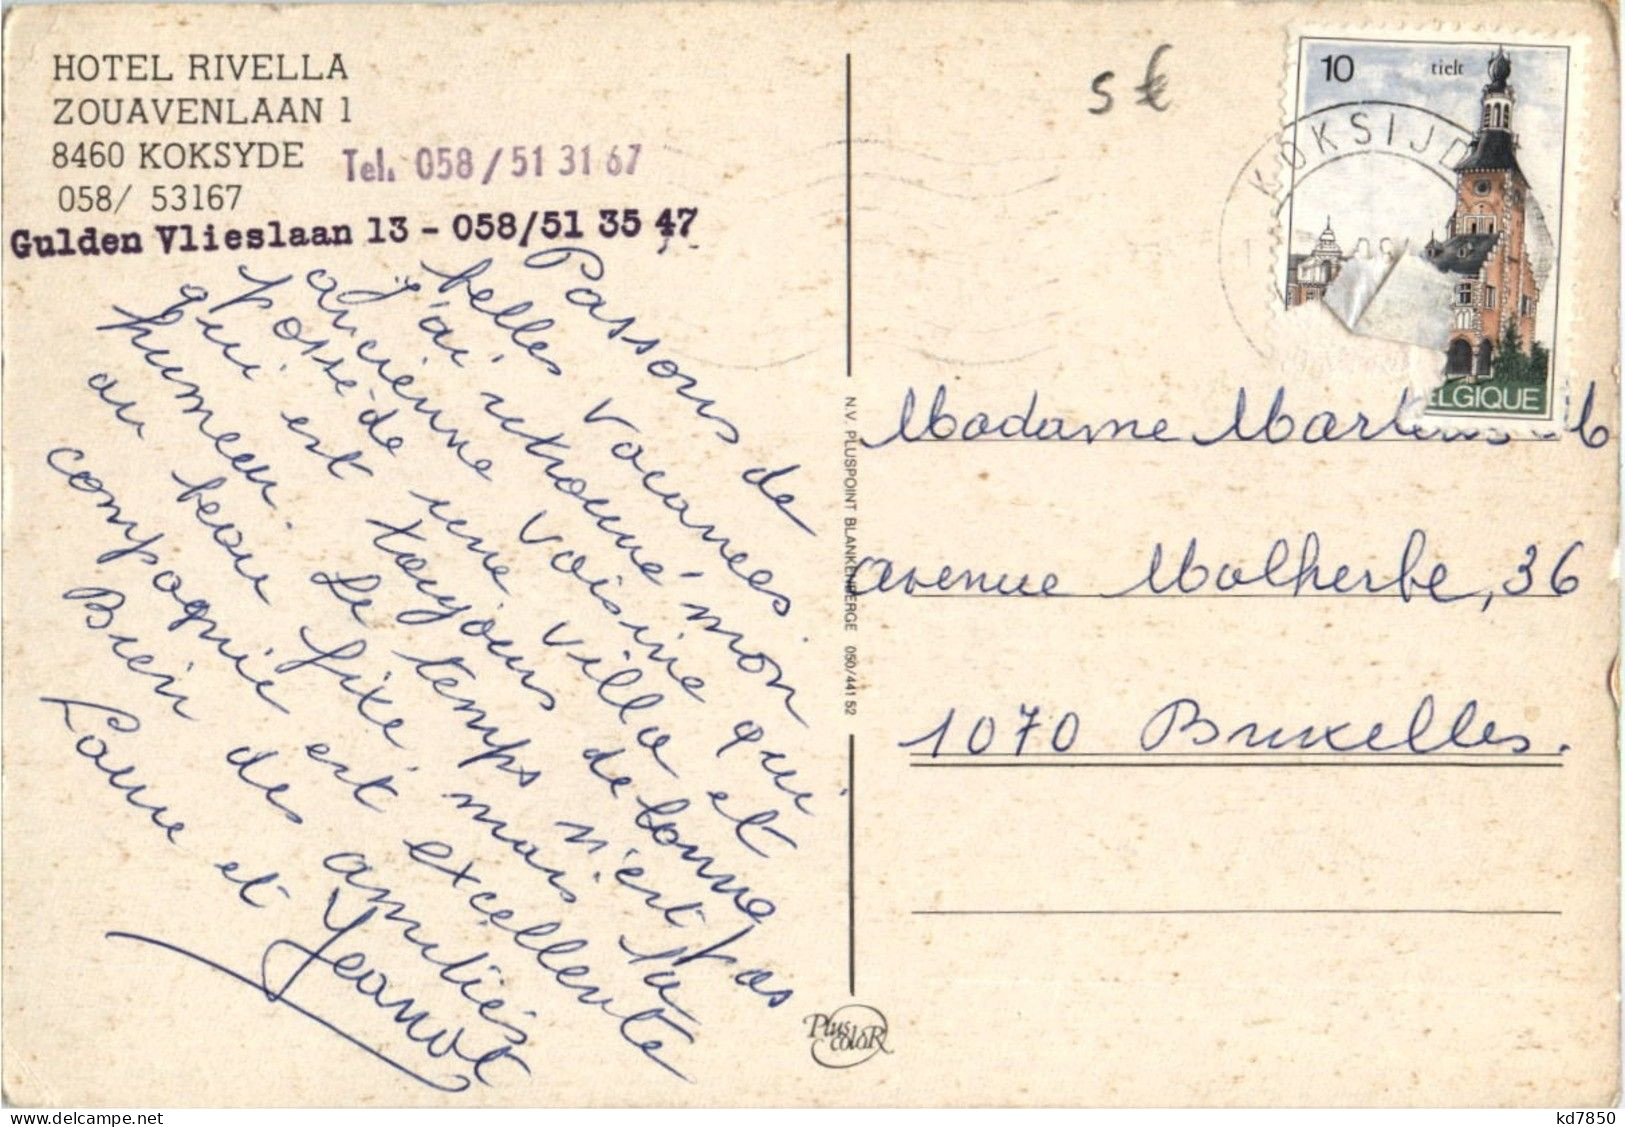 HOTEL RIVELLA
ZOUAVENLAAN 1
8460 KOKSYDE
Tel. 058/51 31 67
058/ 53167
Gulden Vlieslaan 13 - 058/51 35 47
Passons de
belles vacances.
J'ai retrouvé mon
ancienne voisine qui
possède une villa et
qui est toujours de bonne
humeur. Le temps n'est pas
au beau fixe, mais la
compagnie est excellente
Bien des amitiés
Laure et Jeanot
N.V. PLUSPOINT BLANKENBERGE 050/441 52
Plus
coloR
5 €
10 tielt
KOKSIJD
ELGIQUE
Madame
avenue Malherbe, 36
1070 Bruxelles.
kd7850